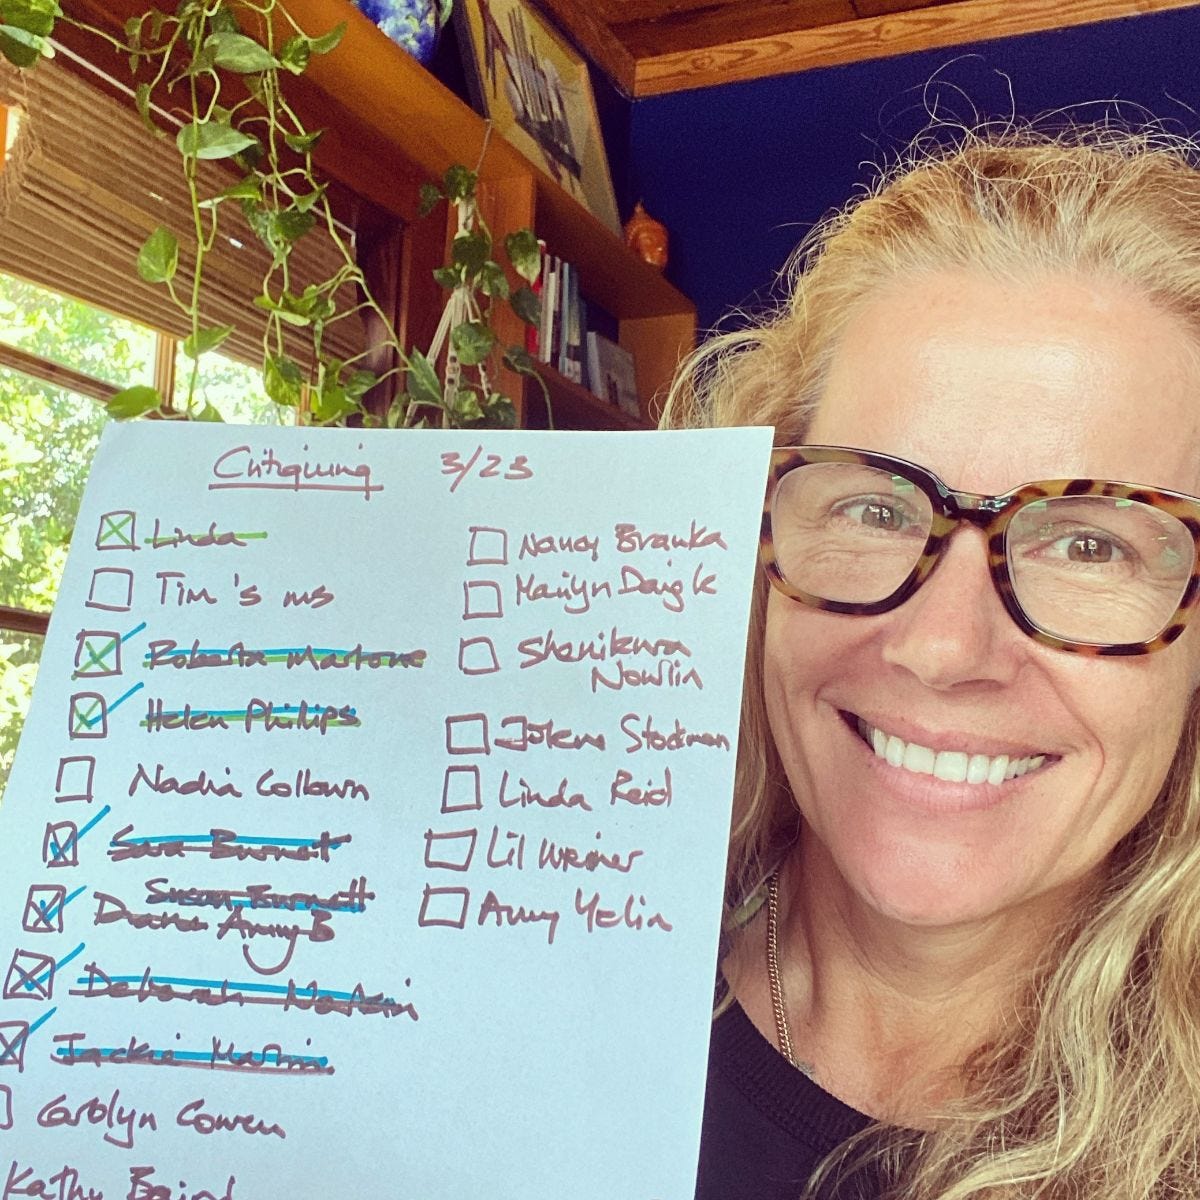 Critiquing 3/23
Linda
Tim's ms
Roberta Martone
Helen Phillips
Nadia Colburn
Sara Burnett
Susan Burnett
Diana Amy B
Deborah
Jackie Martin
Carolyn Cowen
Kathy Baird
Nancy Branka
Marilyn Daigle
Shenikwa
Nowlin
Jolene Stockman
Linda Reid
Lil Weiner
Amy Yelin